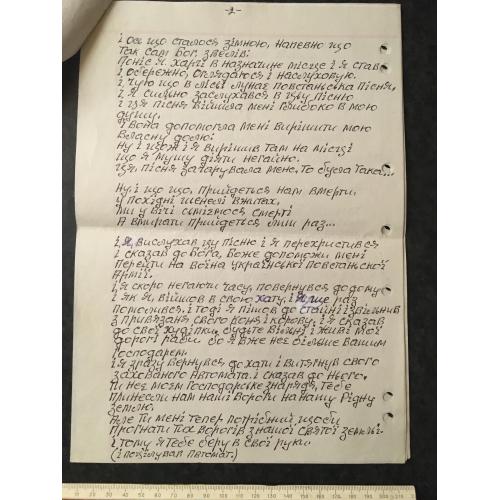 -2-
і ось що сталося зімною, напевно що
Так сам Бог звелів:
Поніс я харчі в назначине місце і я став
і, осережно, оглядаюся і наслуховую.
і, чую що в лісі лунає повстанська пісня,
і, я сильно заслухався в цею пісню
і ця пісня війшла мені глибоко в мою
душу,
і вона допомогла мені вирішити мою
власну долю:
Ну і щож і я вирішив там на місці
що я мушу діяти негайно.
ця, пісня зачарувала мене, То була така...
Ну, і що що, прийдеться нам вмерти,
У похідні шенелі вжитах,
Ми у вічі сміємося смерті
А вмирати прийдеться лиш раз...
і, я, вислухав цу пісню і я перехристився
і сказав до Бога, Боже допоможи мені
Перейти на воїна української повстанської
Армії.
і я скоро негаючи часу, повернувся додому
і як я, війшов в свою хату, і я ще раз
помолився. і тоді я пішов до стайні і звільнив
з привязаня свого коня і корову. і я сказав
до свої худіпки. будьте вільні і живі мої
дорогі раби бо я вже неє більше вашим
Господарем.
і я зразу вернувся до хати і витягнув свого
захованого автомата. і сказав до него.
Ти неє моєм господарське знарядя, тебе
принесли нам наші вороги на нашу Рідну
землю.
Але ти мені тепер потрібний, щоби
прогнати тих ворогів з нашої святої землі.
і тому я тебе беру в свої руки.
(і поцілував автомат.)